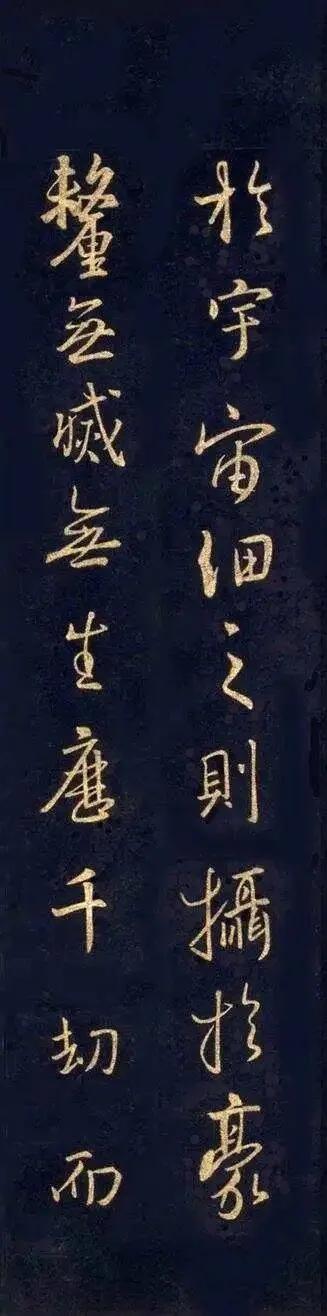 於宇宙細之則攝於豪
釐無滅無生歷千劫而